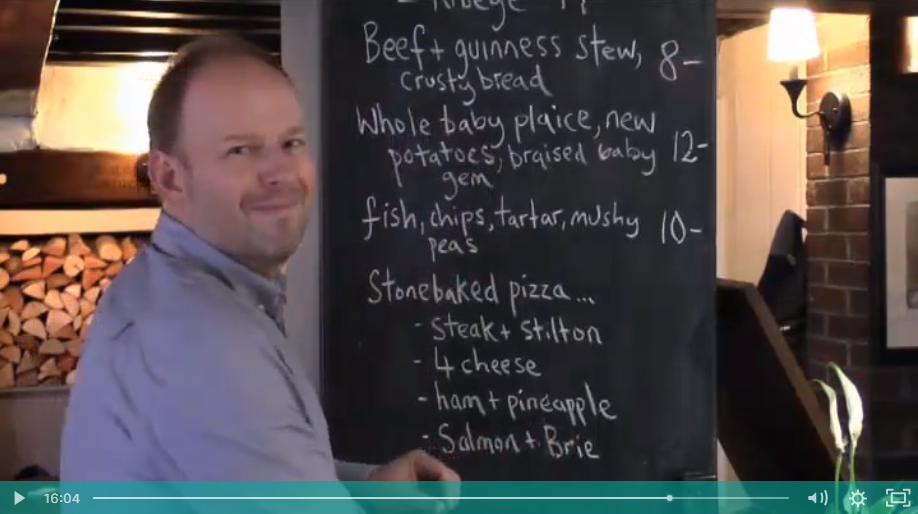 Beef + guinness stew, 8-
crusty bread
Whole baby plaice, new
potatoes, braised baby 12-
gem
fish, chips, tartar, mushy 10-
peas
Stonebaked pizza...
- steak + stilton
- 4 cheese
- ham + pineapple
- Salmon + Brie
16:04